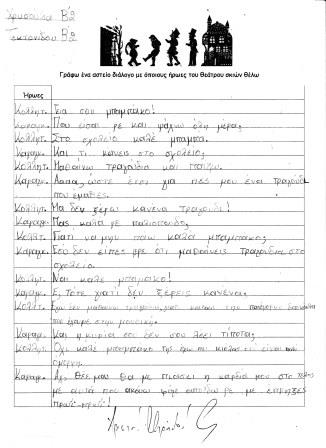 Χρυσούλα Β'2
Τεκτονίδου Β'2
Γράφω ένα αστείο διάλογο με όποιους ήρωες του θεάτρου σκιών θέλω
Ήρωες
Κολλητ. Γεια σου μπαμπάκο!
Καραγκ. Που είσαι ρε και ψάχνω όλη μέρα;
Κολλητ. Στο σχολείο καλέ μπαμπά.
Καραγκ. Και τι κάνεις στο σχολείο;
Κολλητ. Μαθαίνω τραγούδια και παίζω.
Καραγκ. Αααα, ώστε έτσι για πες μου ένα τραγούδι
που έμαθες.
Κολλητ. Μα δεν ξέρω κανένα τραγούδι!
Καραγκ. Πας καλά ρε παλιόπαιδο;
Κολλητ. Γιατί να μην πάω καλά μπαμπάκο;
Καραγκ. Εσύ δεν είπες βρε ότι μαθαίνεις τραγούδια στο
σχολείο.
Κολλητ. Ναι καλέ μπαμπάκο!
Καραγκ. Ε, τότε γιατί δεν ξέρεις κανένα;
Κολλητ. δεν
που έχουμε στην μουσική.
Καραγκ. Και η κυρία σου δεν σου λέει τίποτα;
Κολλητ. Όχι καλέ μπαμπάκο της
σμέρνη.
Καραγκ. Αχ Θεέ μου θα με πιάσει η καρδιά μου στο τέλος
με αυτά που ακούω